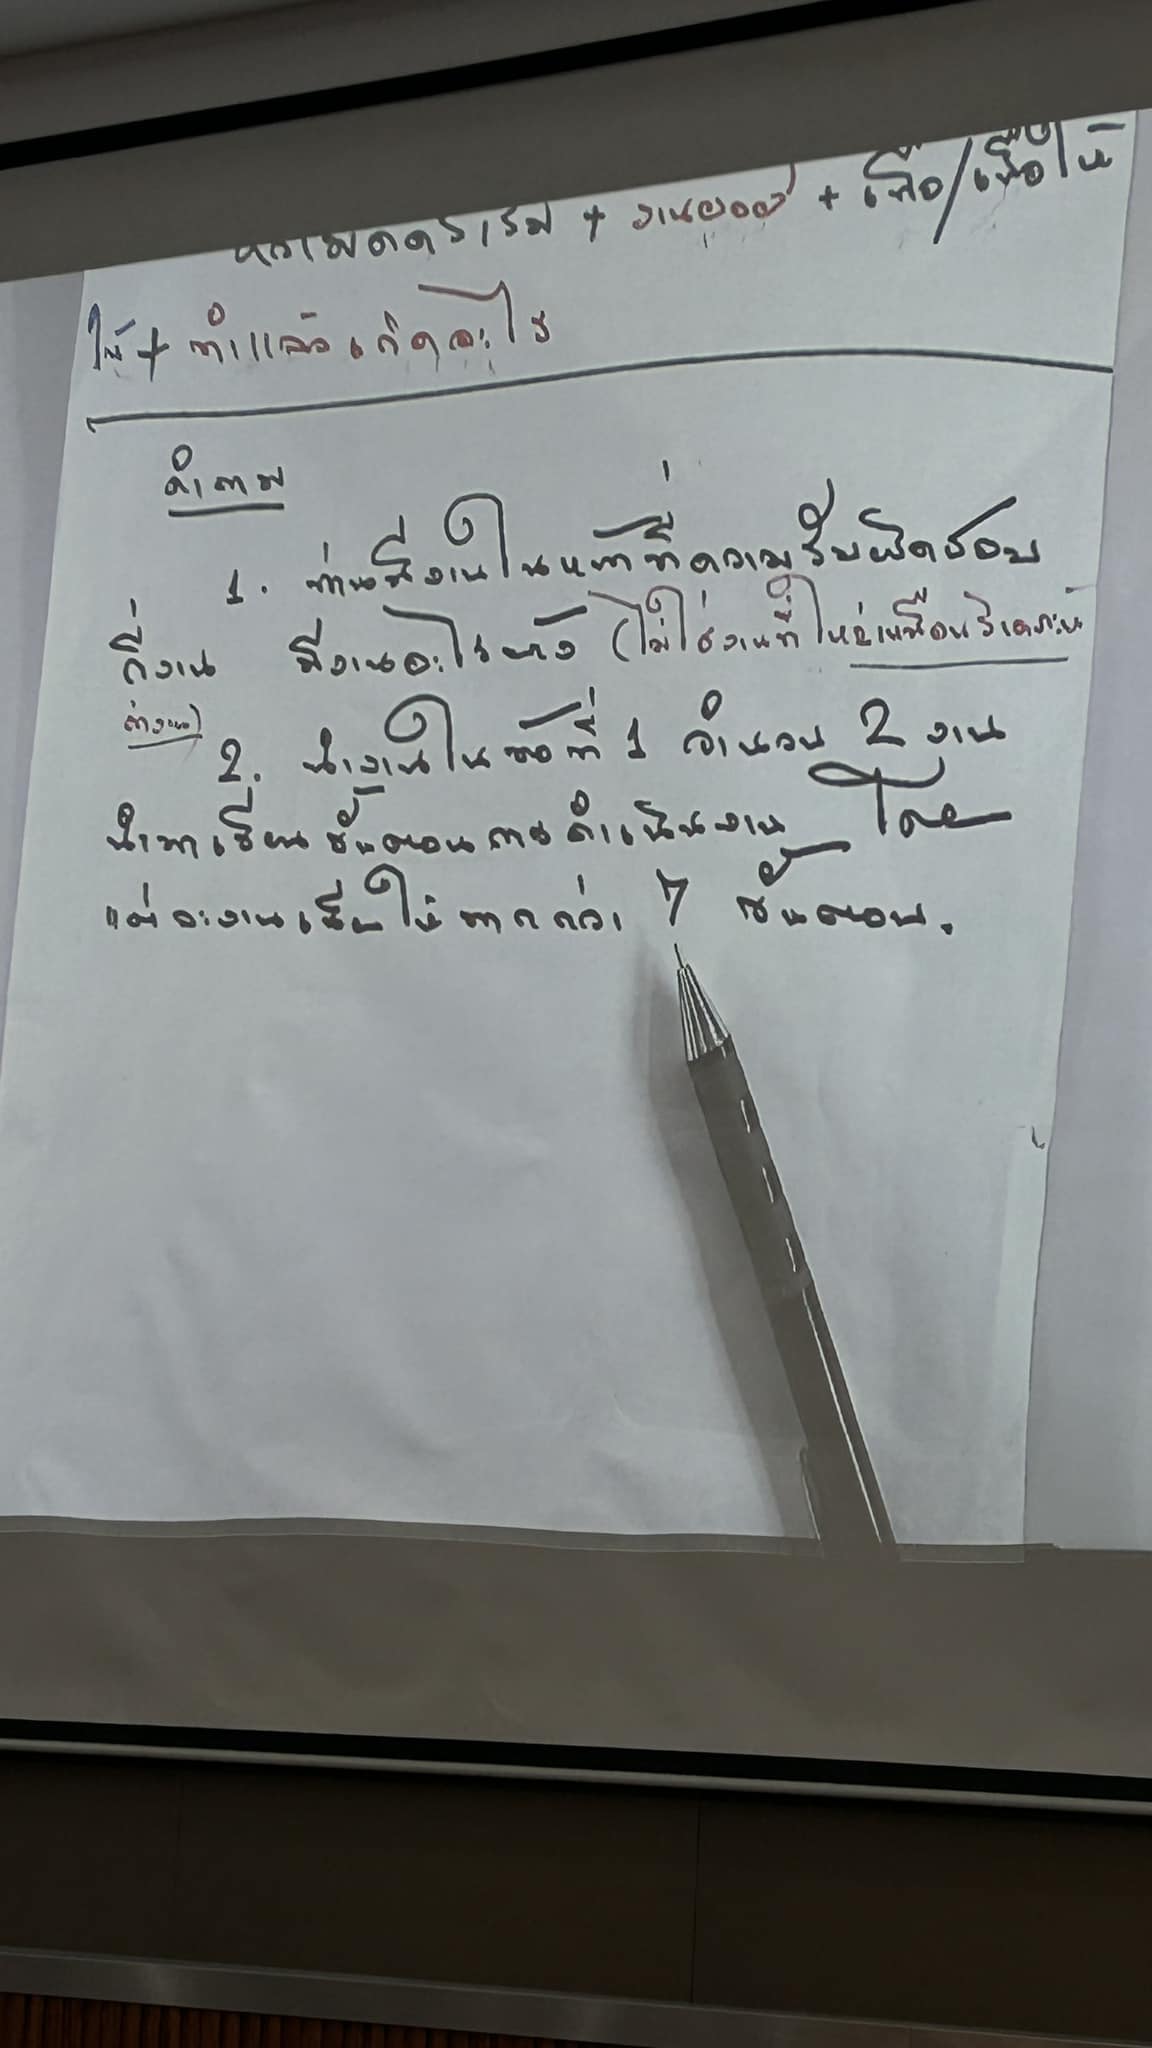 ความคิดริเริ่ม + งานของ + เพื่อ/เพื่อให้
ให้ + ทำแล้วเกิดอะไร
คำถาม
1. ท่านมีงานในหน้าที่ความรับผิดชอบ
กี่งาน มีงานอะไรบ้าง (ไม่ใช่งานที่ใหญ่เหมือนวิเคราะห์
ค่างาน)
2. นำงานในข้อที่ 1 จำนวน 2 งาน
นำมาเขียนขั้นตอนการดำเนินงาน โดย
แต่ละงานเขียนให้มากกว่า 7 ขั้นตอน.